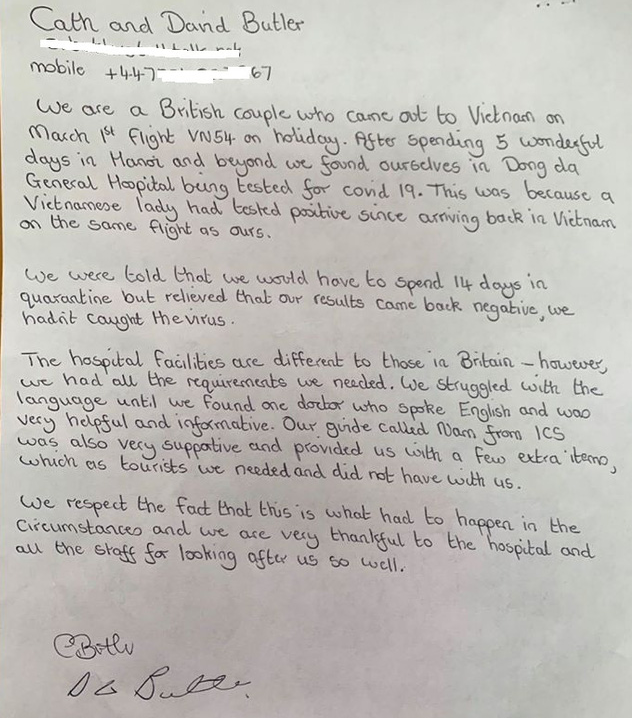 Cath and David Butler
mobile +447 67
We are a British couple who came out to Vietnam on
March 1st flight VN54 on holiday. After spending 5 wonderful
days in Hanoi and beyond we found ourselves in Dong da
General Hospital being tested for covid 19. This was because a
Vietnamese lady had tested positive since arriving back in Vietnam
on the same flight as ours.
We were told that we would have to spend 14 days in
quarantine but relieved that our results came back negative, we
hadn't caught the virus.
The hospital facilities are different to those in Britain – however,
we had all the requirements we needed. We struggled with the
language until we found one doctor who spoke English and was
very helpful and informative. Our guide called Nam from ICS
was also very supportive and provided us with a few extra items,
which as tourists we needed and did not have with us.
We respect the fact that this is what had to happen in the
circumstances and we are very thankful to the hospital and
all the staff for looking after us so well.
CButler
D G Butler